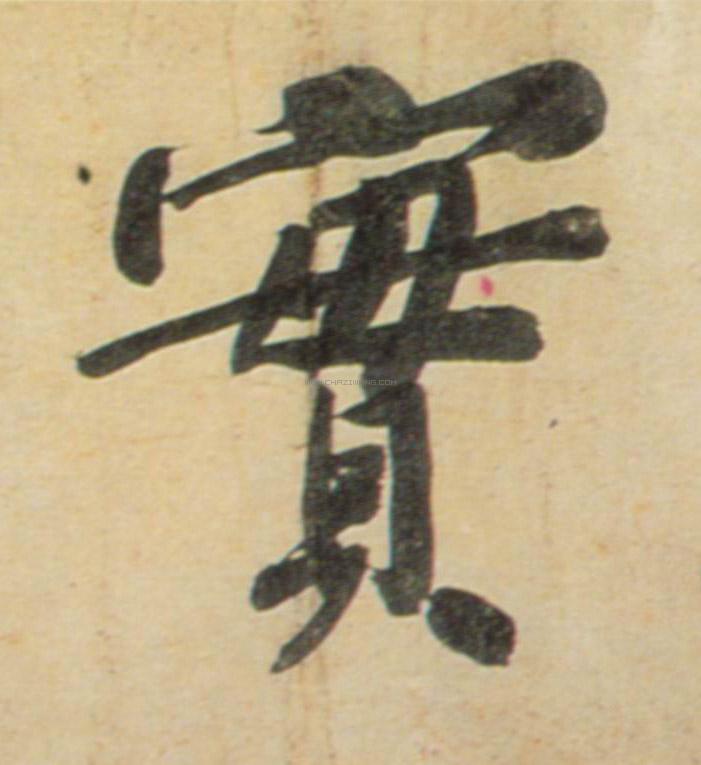 實
WWW.CHAZIWANG.COM